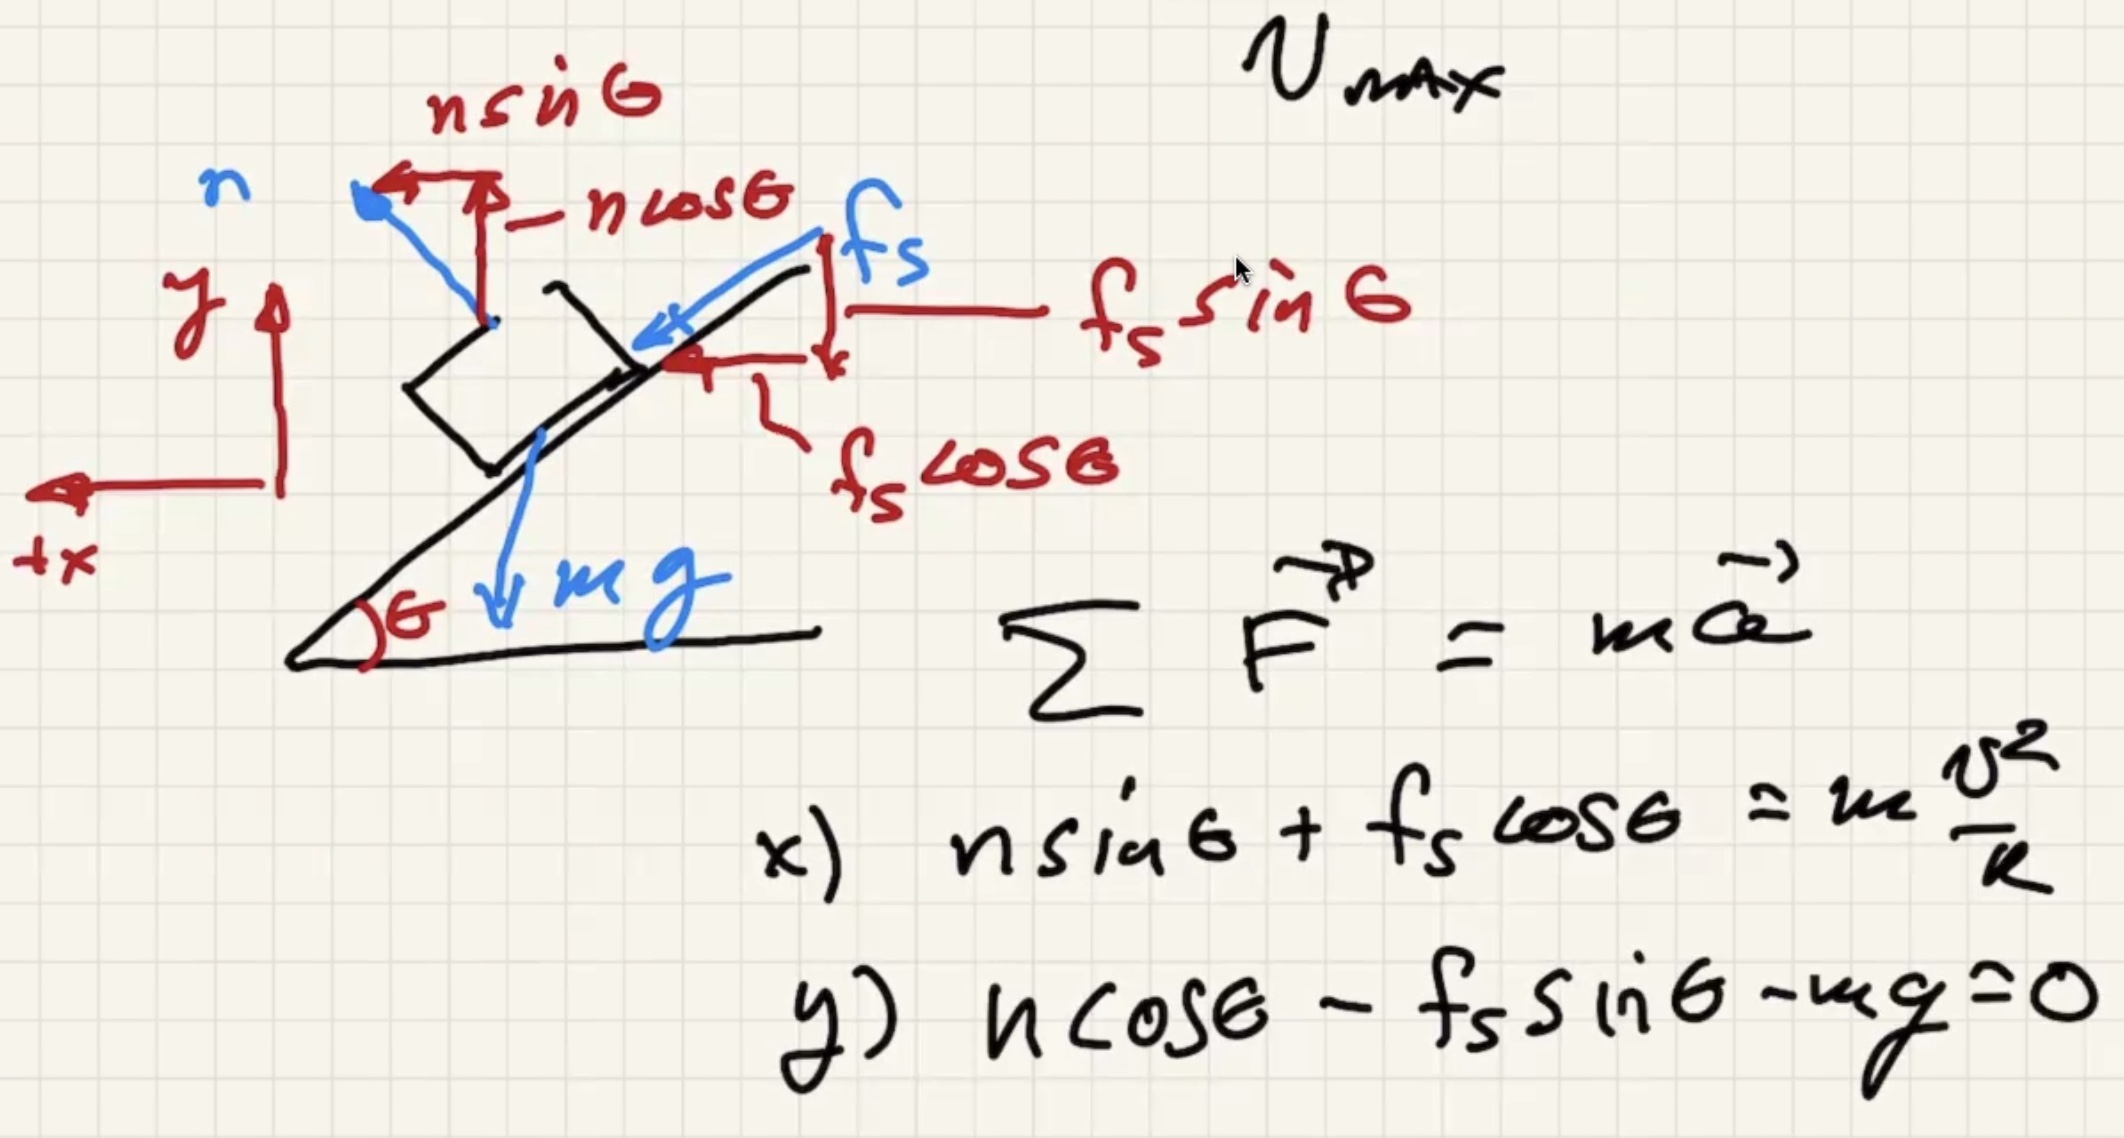 v_MAX
n sin θ
n
n cos θ
f_s
y
f_s sin θ
f_s cos θ
+x
θ
mg
∑ F⃗ = ma⃗
x) n sin θ + f_s cos θ = m v²/R
y) n cos θ - f_s sin θ - mg = 0